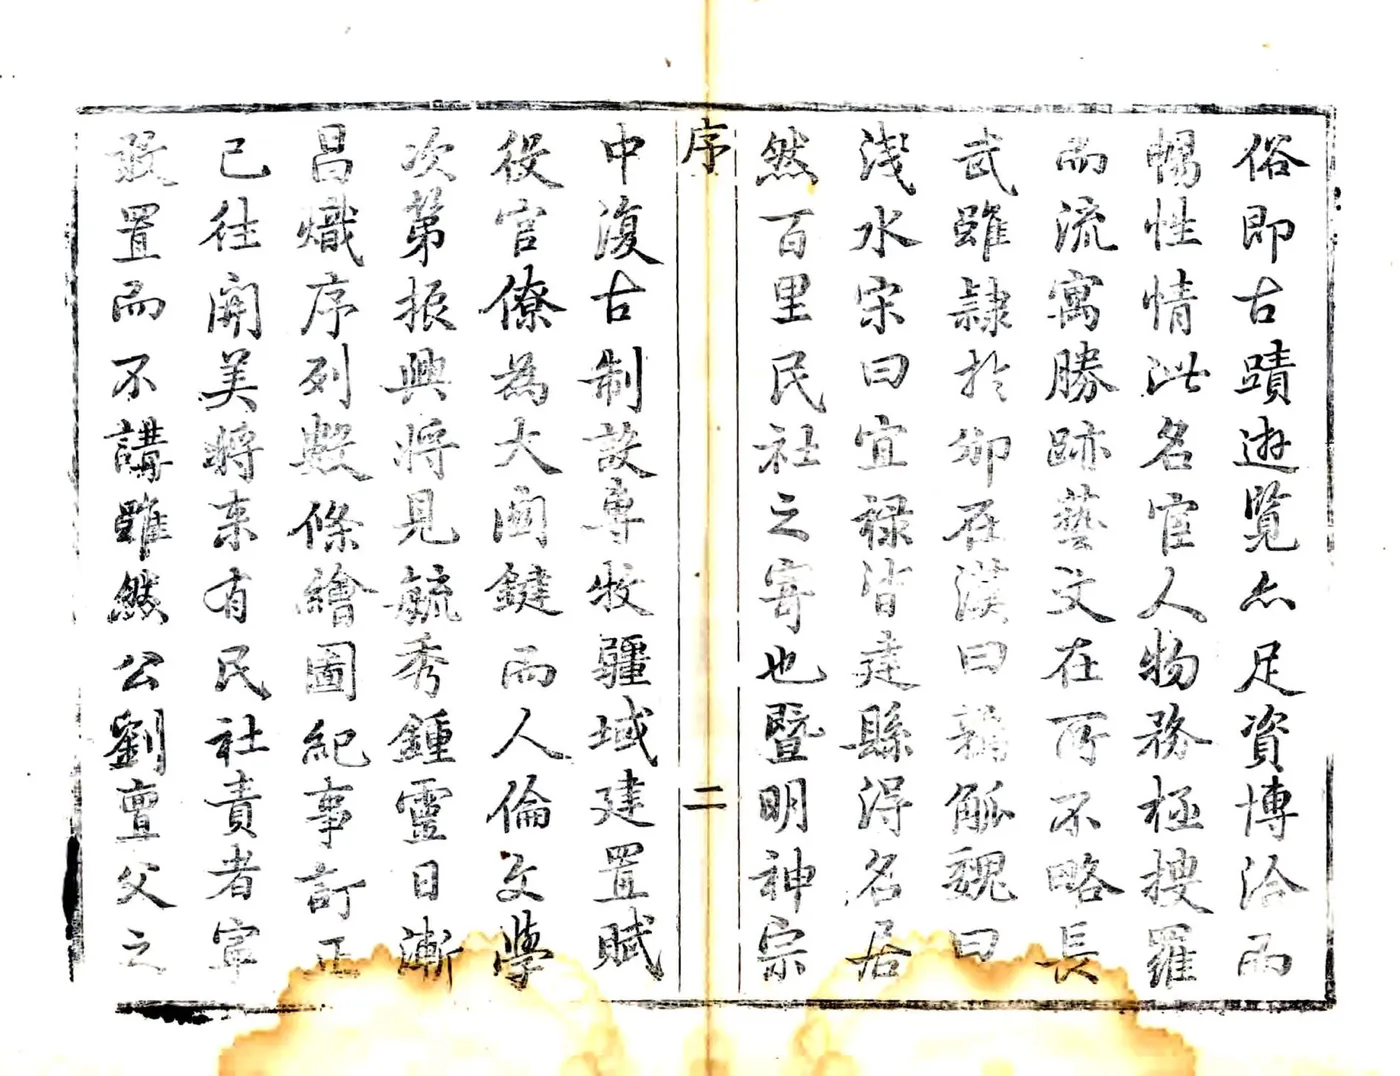 俗即古蹟遊覽亦足資博洽而
暢性情洪名宦人物務極搜羅
而流寓勝跡藝文在所不略長
武雖隷於邠在漢曰鶉觚魏曰
淺水宋曰宜禄皆建縣得名居
然百里民社之寄也暨明神宗
序
二
中復古制設專牧疆域建置賦
役官僚為大関鍵而人倫文學
次第振興將見毓秀鍾靈日漸
昌熾序列數條繪圖紀事訂正
已往開美將來有民社責者寧
敢置而不講雖然公劉亶父之